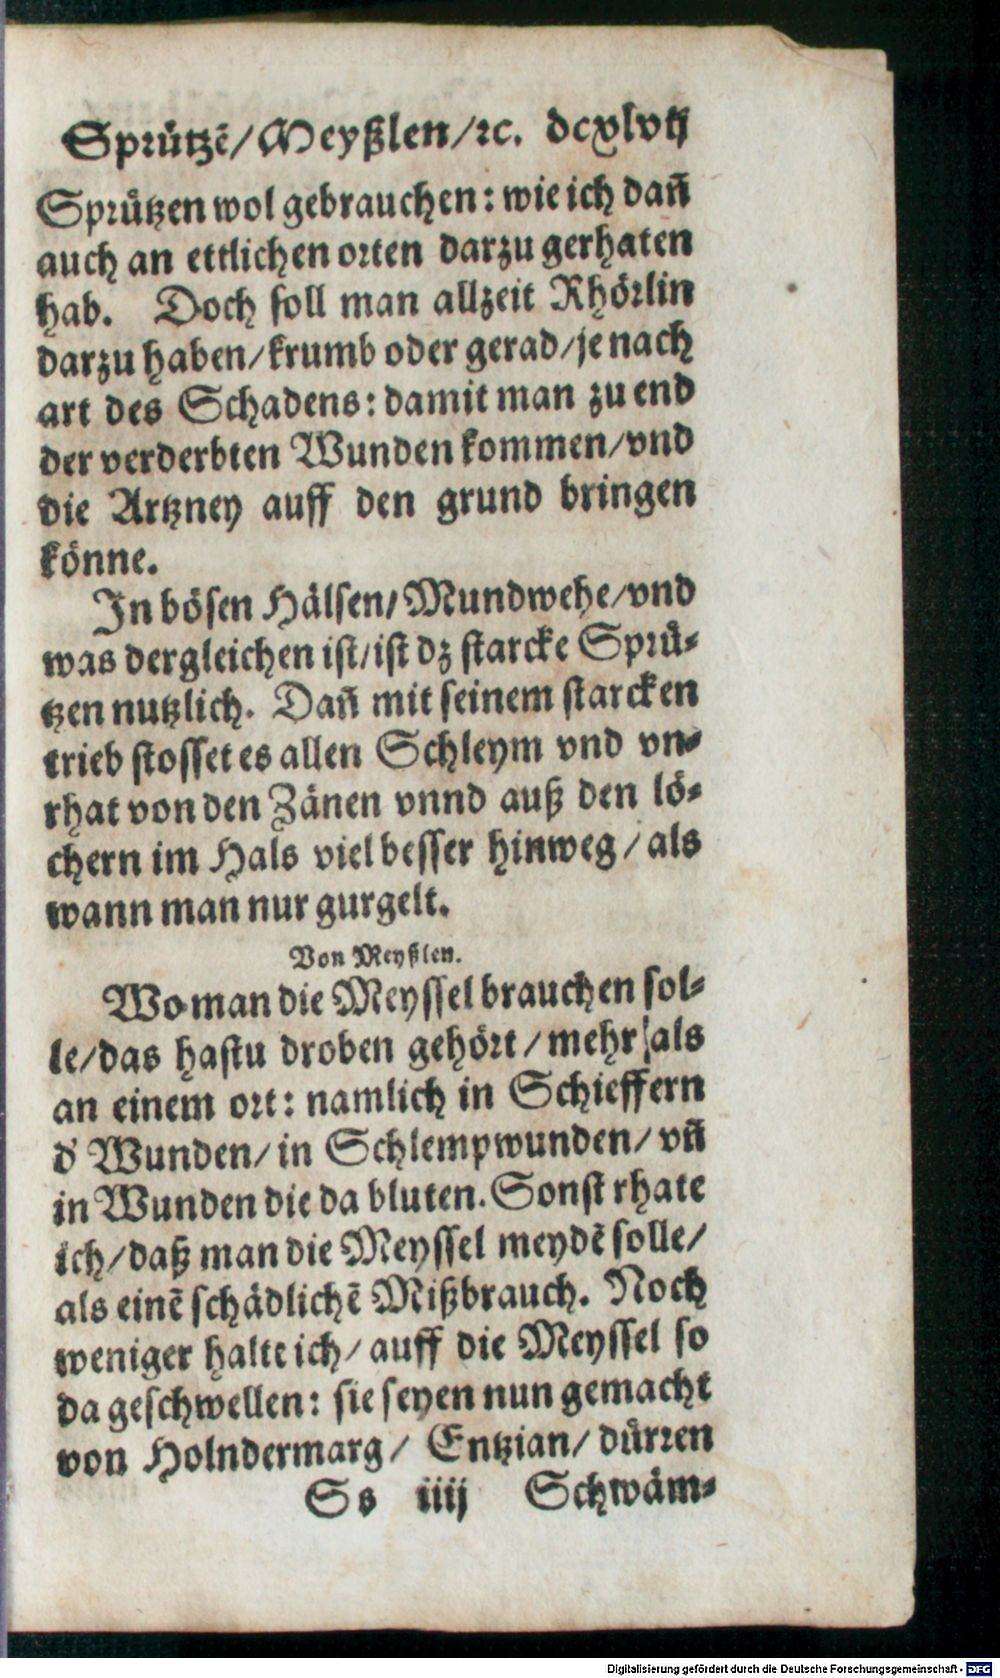 Sprützē/Meyßlen/ꝛc. dcxlvij
Sprützen wol gebrauchen: wie ich dañ
auch an ettlichen orten darzu gerhaten
hab. Doch soll man allzeit Rhörlin
darzu haben/krumb oder gerad/je nach
art des Schadens: damit man zu end
der verderbten Wunden kommen/vnd
die Artzney auff den grund bringen
könne.
In bösen Hälsen/Mundwehe/vnd
was dergleichen ist/ist dz starcke Sprü-
tzen nutzlich. Dañ mit seinem starcken
trieb stosset es allen Schleym vnd vn-
rhat von den Zänen vnnd auß den lö-
chern im Hals viel besser hinweg/als
wann man nur gurgelt.
Von Meyßlen.
Wo man die Meyssel brauchen sol-
le/das hastu droben gehört/mehr als
an einem ort: namlich in Schieffern
d' Wunden/in Schlempwunden/vñ
in Wunden die da bluten. Sonst rhate
ich/daß man die Meyssel meydē solle/
als einē schädlichē Mißbrauch. Noch
weniger halte ich/auff die Meyssel so
da geschwellen: sie seyen nun gemacht
von Holndermarg/Entzian/dürren
Ss iiij Schwäm-
Digitalisierung gefördert durch die Deutsche Forschungsgemeinschaft - DFG